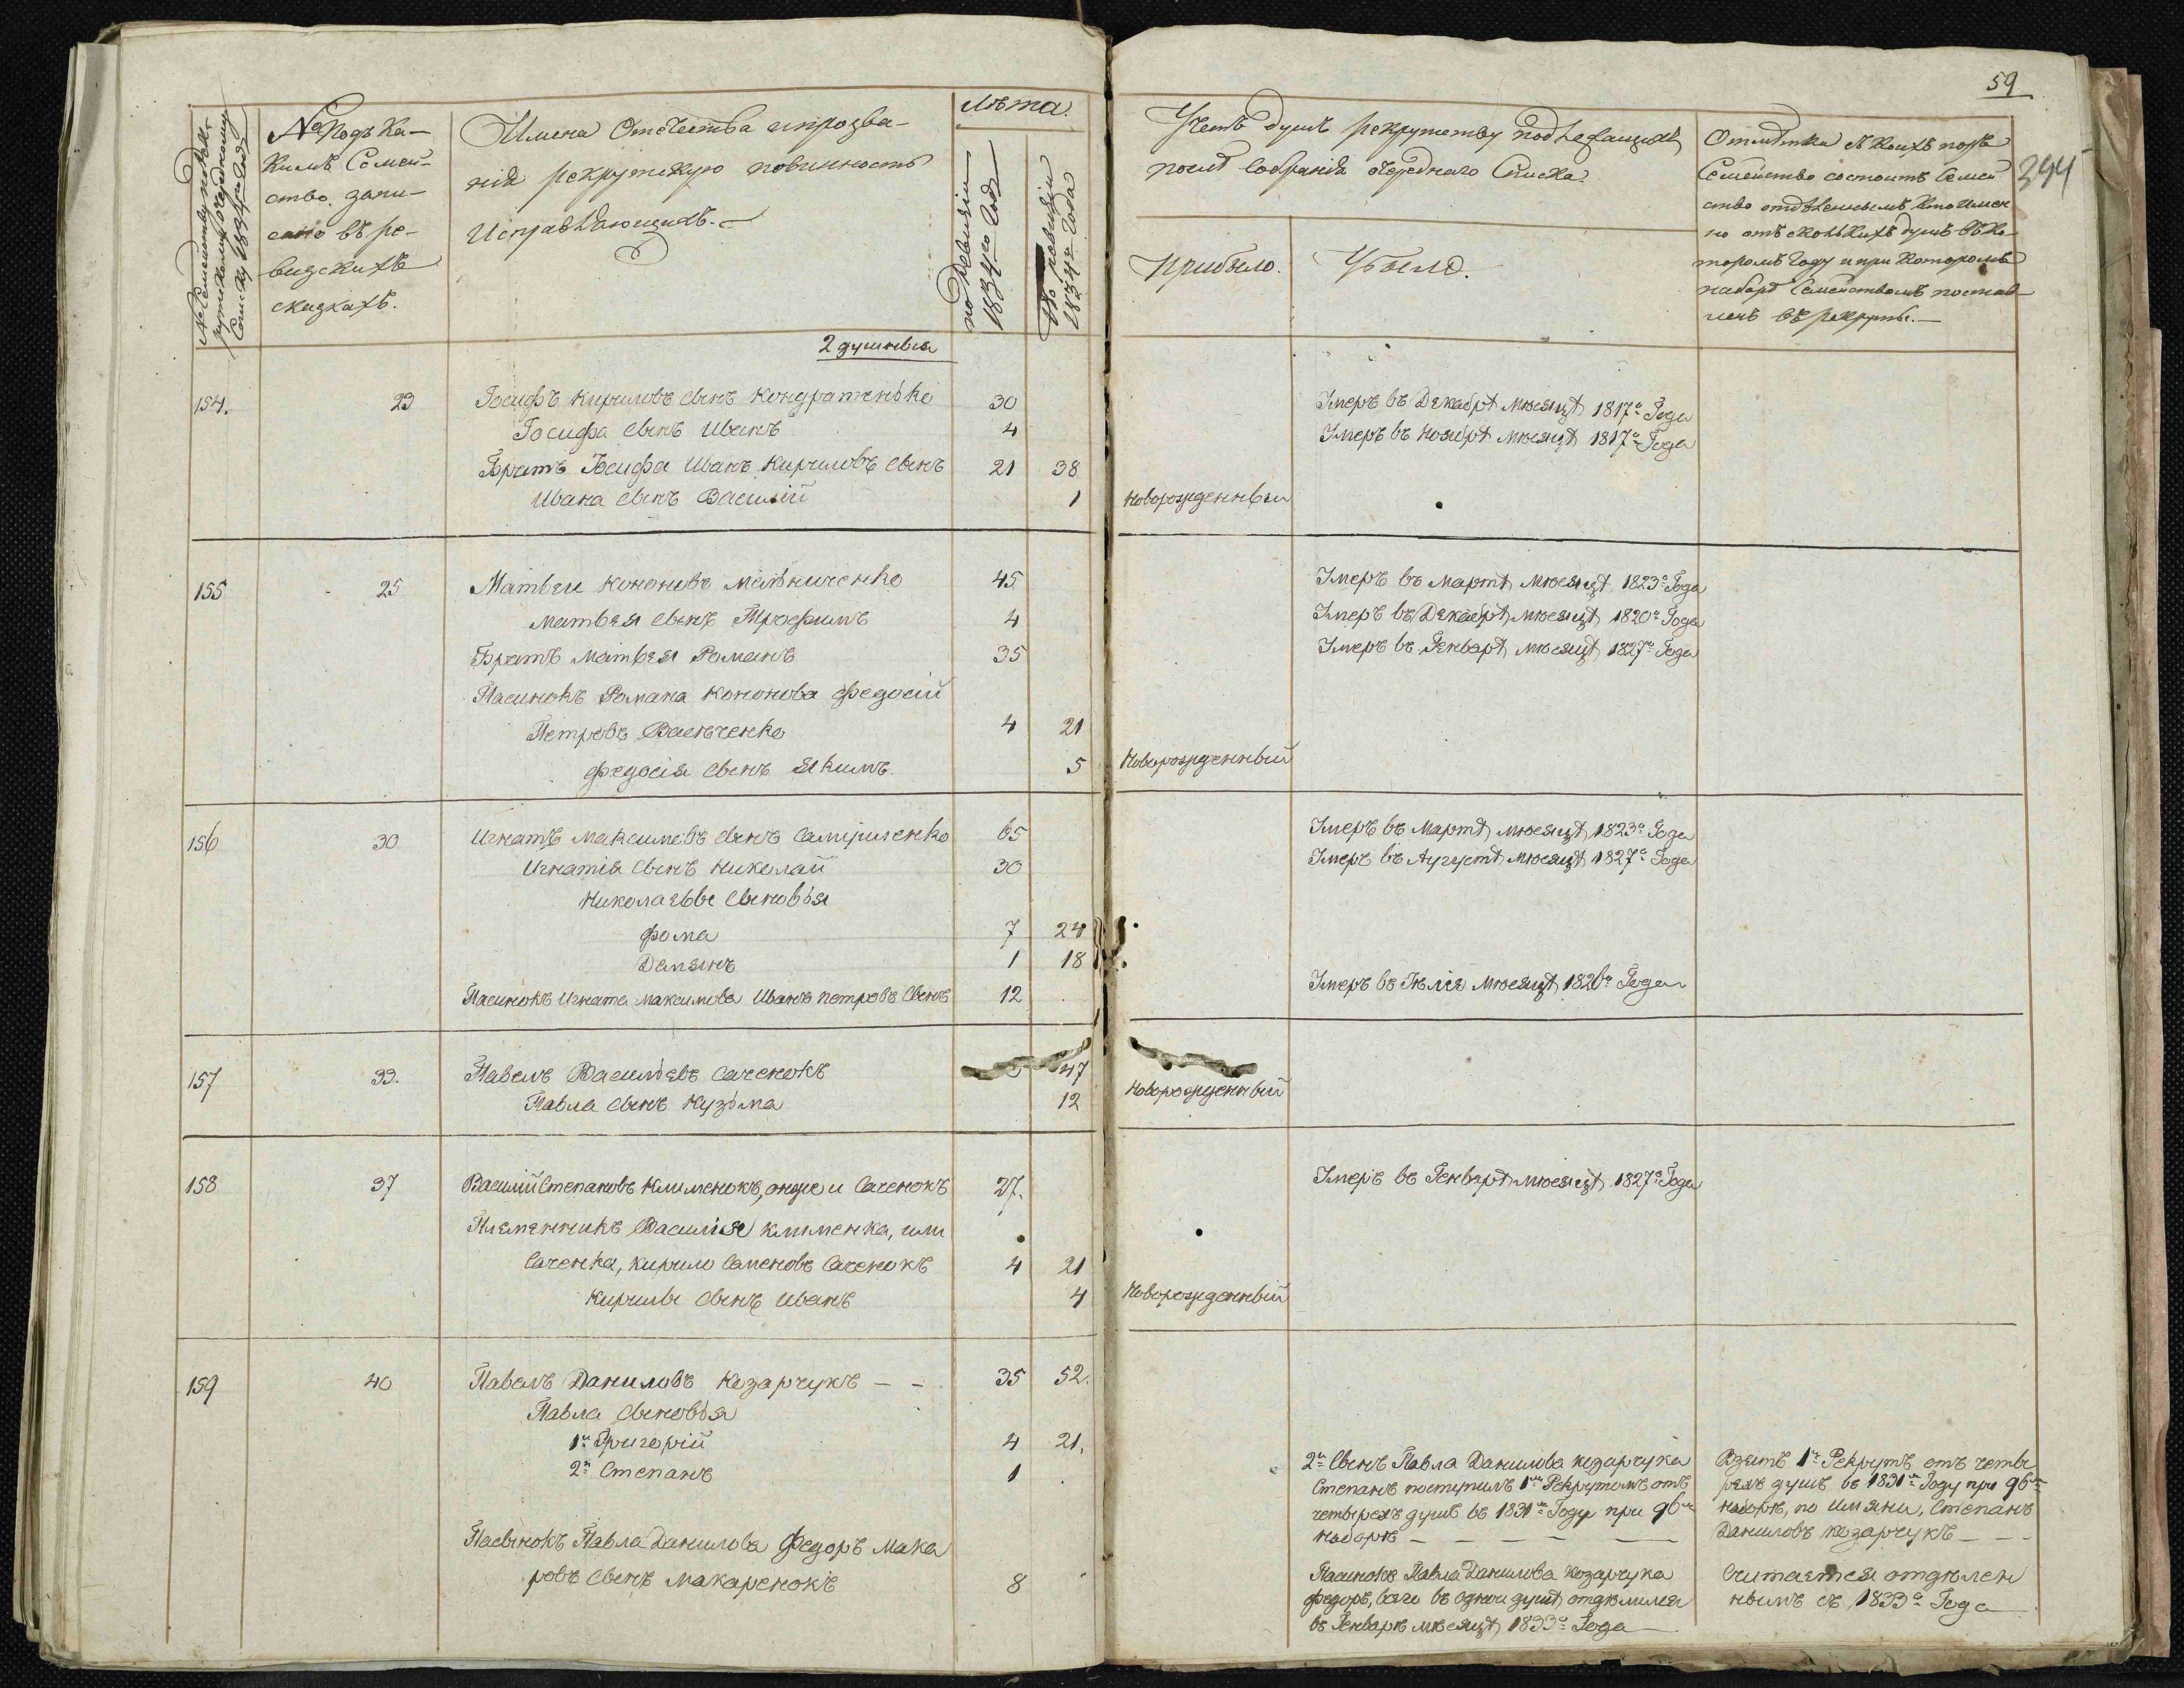 59
394
№ Семейству по рек-
рутскому очередному
списку 1834го года
№ Подъ Ка-
кимъ Семей-
ство запи-
сано въ ре-
визскихъ
сказкахъ.
Имена Отечества и прозва-
нія рекрутскую повинность
Исправляющихъ.
Лѣта.
по ревизіи
1834го года
Учетъ душъ рекрутству подлежащихъ
послѣ собранія очереднаго Списка.
Прибыло.
Убыло.
Отмѣтка съ коихъ поръ
Семейство состоитъ Семей
ство отдѣленнымъ кто имен
но отъ сколькихъ душъ въ ко
торомъ Году и при Которомъ
наборѣ Семействомъ постав
ленъ въ рекруты.—
2 душевыя
154. 23 Іосифъ Кириловъ сынъ Кондратенько 30 Умеръ въ Декабрѣ мѣсяцѣ 1817го Года
Іосифа сынъ Иванъ 4 Умеръ въ Ноябрѣ мѣсяцѣ 1817го Года
Братъ Іосифа Иванъ Кириловъ сынъ 21 38
Ивана сынъ Василій 1 Новорожденный
155 25 Матвеи Кононовъ Мельниченко 45 Умеръ въ Мартѣ мѣсяцѣ 1823го Года
Матвея сынъ Трофимъ 4 Умеръ въ Декабрѣ мѣсяцѣ 1820го Года
Братъ Матвея Романъ 35 Умеръ въ Генварѣ мѣсяцѣ 1827го Года
Пасинокъ Романа Кононова Федосій
Петровъ Васьченко 4 21
Федосія сынъ Якимъ 5 Новорожденный
156 30 Игнатъ Максимовъ сынъ 65 Умеръ въ Мартѣ мѣсяцѣ 1823го Года
Игнатія сынъ Николай 30 Умеръ въ Аугустѣ мѣсяцѣ 1827го Года
Николаевы сыновья
Фома 7 24
Демянъ 1 18
Пасинокъ Игната Максимова Иванъ Петровъ сынъ 12 Умеръ въ Іюлѣ мѣсяцѣ 1826го Года
157 33. Павелъ Васильевъ Саченокъ 47
Павла сынъ Кузьма 12 Новорожденный
158 37 Василій Степановъ Клименокъ, онже и Саченокъ 27. Умеръ въ Генварѣ мѣсяцѣ 1827го Года
Племенникъ Василія Клименка, или
Саченка, Кирило Семеновъ Саченокъ 4 21
Кирилы сынъ Иванъ 4 Новорожденный
159 40 Павелъ Даниловъ Козарчукъ — — 35 52.
Павла сыновья
1й Григорій 4 21.
2й Степанъ 1
2й Сынъ Павла Данилова Козарчука
Степанъ поступилъ 1мъ Рекрутомъ отъ
четырехъ душъ въ 1831мъ Году при 96мъ
наборѣ — — — — —
Взятъ 1й Рекрутъ отъ четы
рехъ душъ въ 1831мъ Году при 96мъ
наборѣ, по имяни, Степанъ
Даниловъ Козарчукъ — — —
Пасынокъ Павла Данилова Федоръ Мака
ровъ сынъ Макаренокъ 8
Пасинокъ Павла Данилова Козарчука
Федоръ, всего въ одной душѣ отдѣлился
въ Генварѣ мѣсяцѣ 1833го Года
Считается отдѣлен
нымъ съ 1833го Года